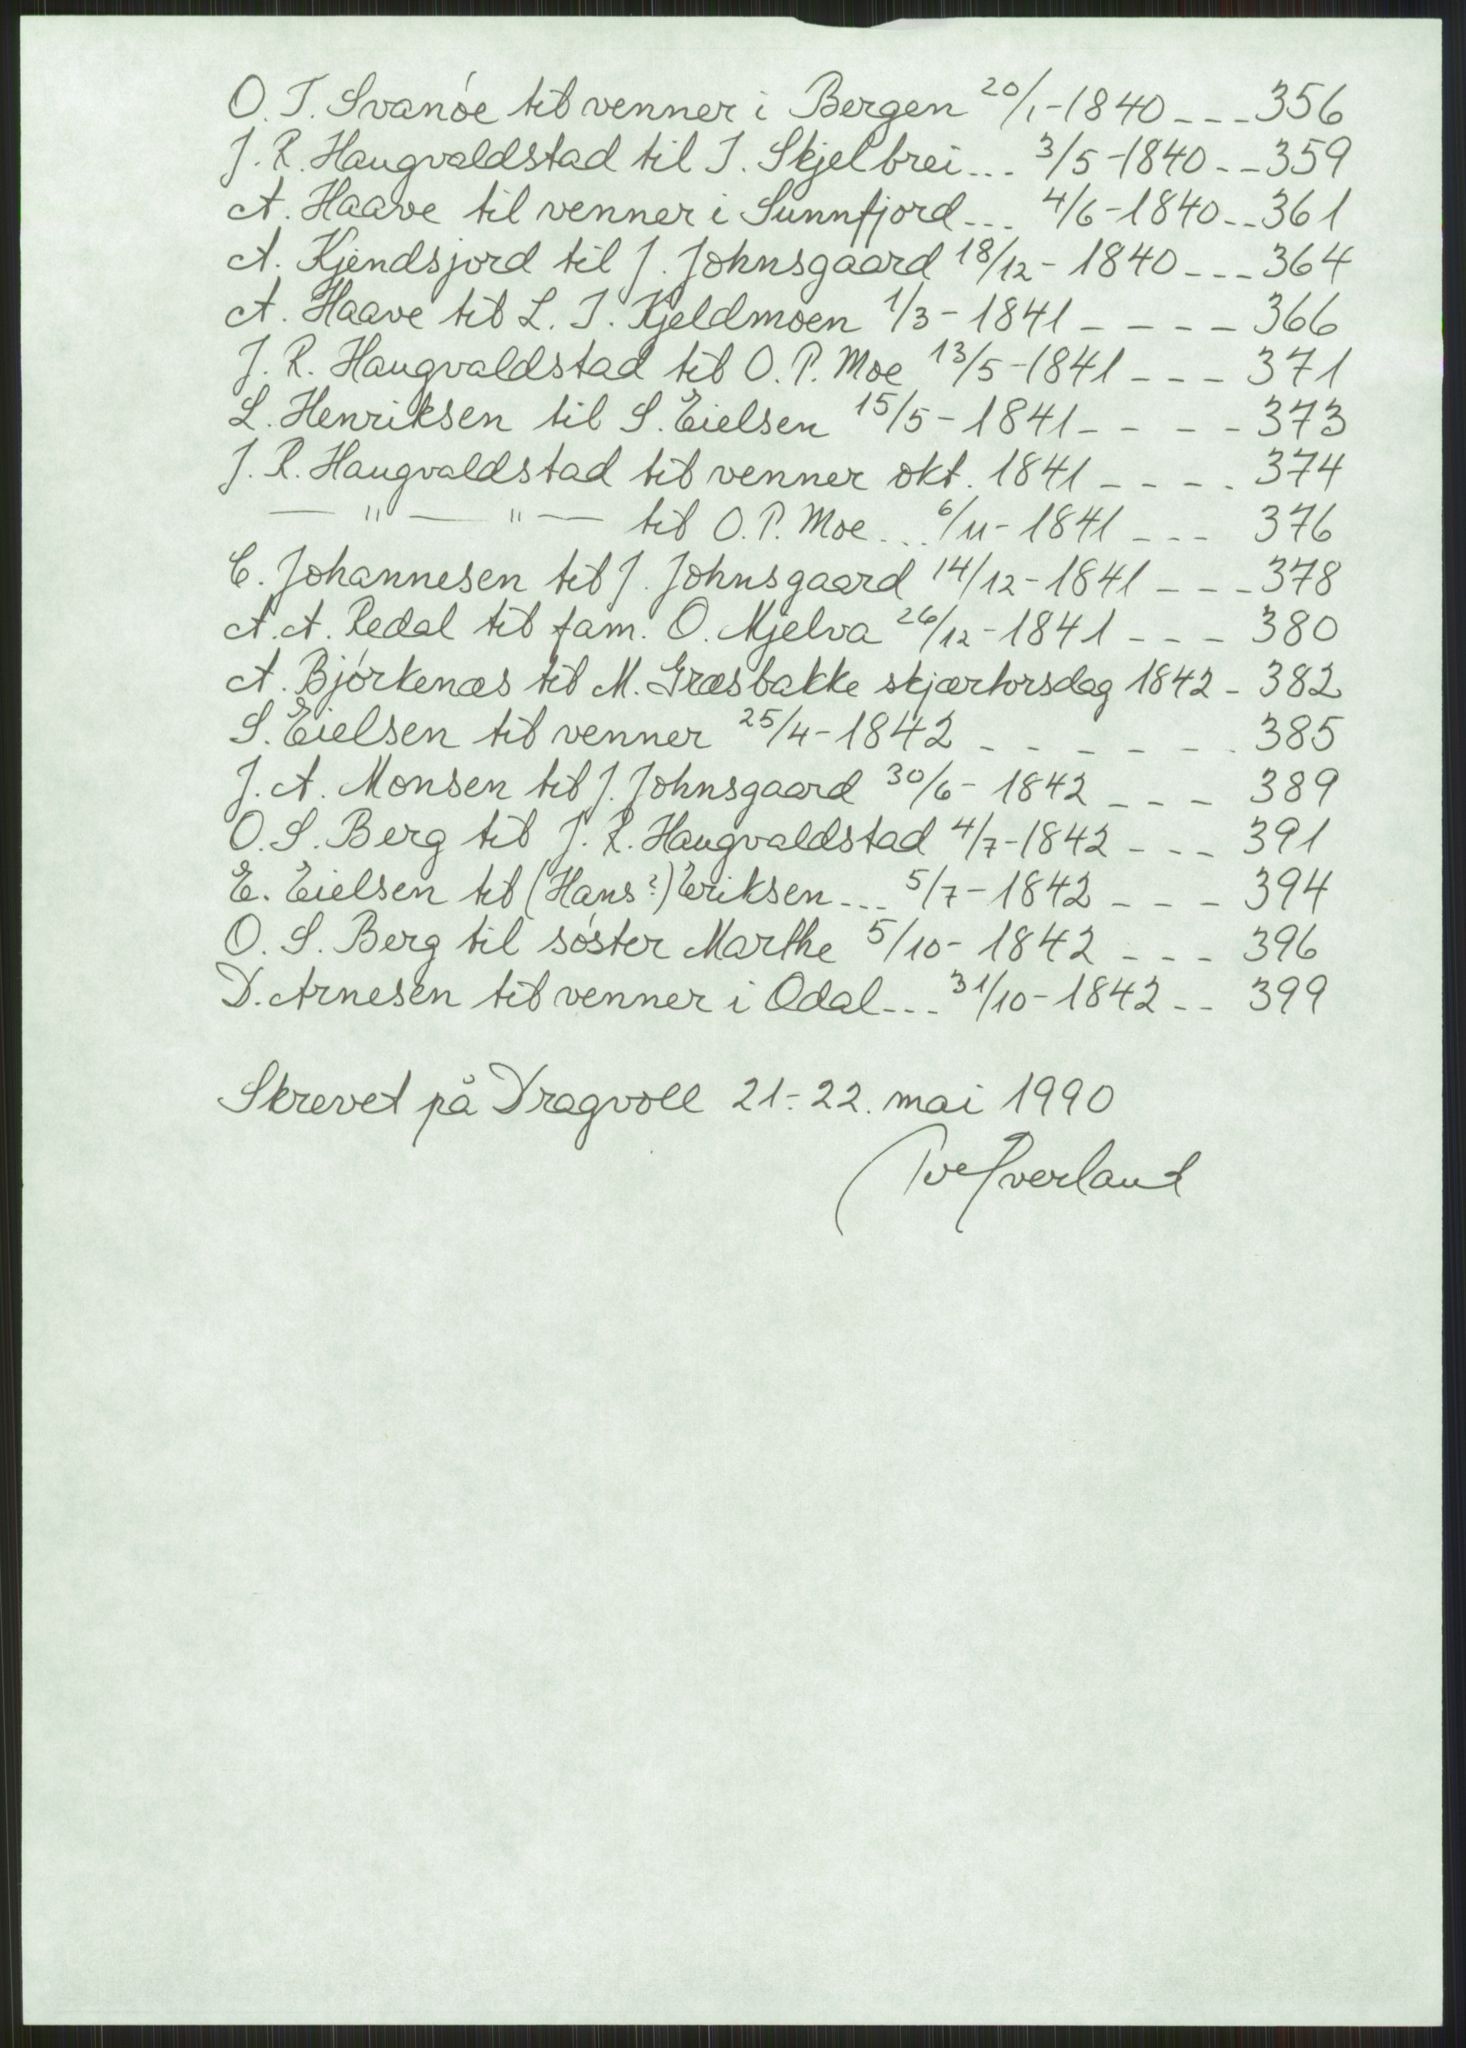 O. T. Svanóe til venner i Bergen 20/1-1840 --- 356
J. R. Haugvaldstad til T. Skjelbrei... 3/5-1840 -- 359
A. Haave til venner i Sunnfjord... 4/6-1840 -- 361
A. Kjendsjord til J. Johnsgaard 18/12-1840 --- 364
A. Haave til L. T. Kjeldmoen 1/3-1841 ---- 366
J. R. Haugvaldstad til O. P. Moe 13/5-1841 --- 371
L. Henriksen til S. Eielsen 15/5-1841 ---- 373
J. R. Haugvaldstad til venner okt. 1841 ---- 374
— " — " — til O. P. Moe... 6/11-1841 --- 376
C. Johannesen til J. Johnsgaard 14/12-1841 --- 378
A. A. Redal til fam. O. Mjelva 26/12-1841 --- 380
A. Bjórkenæs til M. Græsbakke skjærtorsdag 1842 - 382
S. Eielsen til venner 25/4-1842 ------ 385
J. A. Monsen til J. Johnsgaard 30/6-1842 --- 389
O. S. Berg til J. R. Haugvaldstad 4/7-1842 --- 391
E. Eielsen til (Hans?) Eriksen... 5/7-1842 --- 394
O. S. Berg til sóster Marthe 5/10-1842 --- 396
D. Arnesen til venner i Odal... 31/10-1842 -- 399
Skrevet på Dragvoll 21.-22. mai 1990
Överland